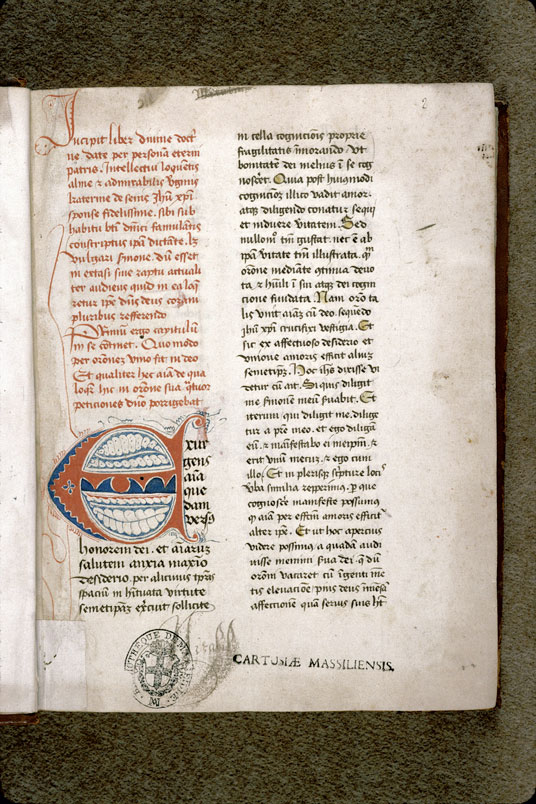 2
Incipit liber divine doct
ne date per personã eterni
patris. Intellectui loquentis
alme & admirabilis Vginis
katerine de senis ihu xpi
sponse fidelissime. sibi sub
habitu bti dñici famulãtis
conscriptus ipã dictãte. lz
vulgari smone. dũ esset
in extasi sive raptu actuali
ter audiens quid in ea loq
retur ipe dñs deus coram
pluribus refferendo
Primum ergo capitulũ
in se cõtinet. Quo modo
per oronez unio fit in deo
Et qualiter hec aĩa de qua
loqr hic in orõne sua quor
peticiones dño porrigebat
Exur
gens
aĩa
que
dam
versus
honorem dei. et aĩarum
salutem anxia maxĩo
desiderio. per alicuius tpris
spacium in hituata virtute
semetipaz exercuit sollicite
in cella cognicionis proprie
fragilitatis imorando. Vt
bonitatem dei melius i se cog
nosceret. Quia post huiusmodi
cognicionez illico vadit amor.
atqz diligendo conatur sequi
et induere veritatem. Sed
nullomo tm gustat. nec e ab
ipa vitate tm illustrata. qm
orõne mediante gtinua devo
ta, & huili i sui atqz dei cogni
cione fundata. Nam orõ ta
lis unit aiaz cũ deo. sequedo
ihu xpi crucifixi vestigia. Et
sic ex affectuoso desiderio et
unione amoris efficit aliuz
semetipsz. Hoc ihs dixisse vi
detur cũ ait. Si quis diligit
me smonem meũ suabit. Et
iterum qui diligit me. dilige
tur a pre meo. et ego diligã
eũ. & manifestabo ei meipm. &
erit unũ mecuz. & ego cum
illo. Et in plerisqz scpture locis
vba similia repperimus. p que
cognoscere manifeste possumus
q aiam per effcm amoris efficit
alter ipe. Et ut hoc apercius
videre possimus a quadã audi
visse memini sua dei. q dũ
orõni vacaret cũ ingenti me
tis elevacõe. prius deus imesa
affectione quã servis suis ht
CARTUSIÆ MASSILIENSIS.